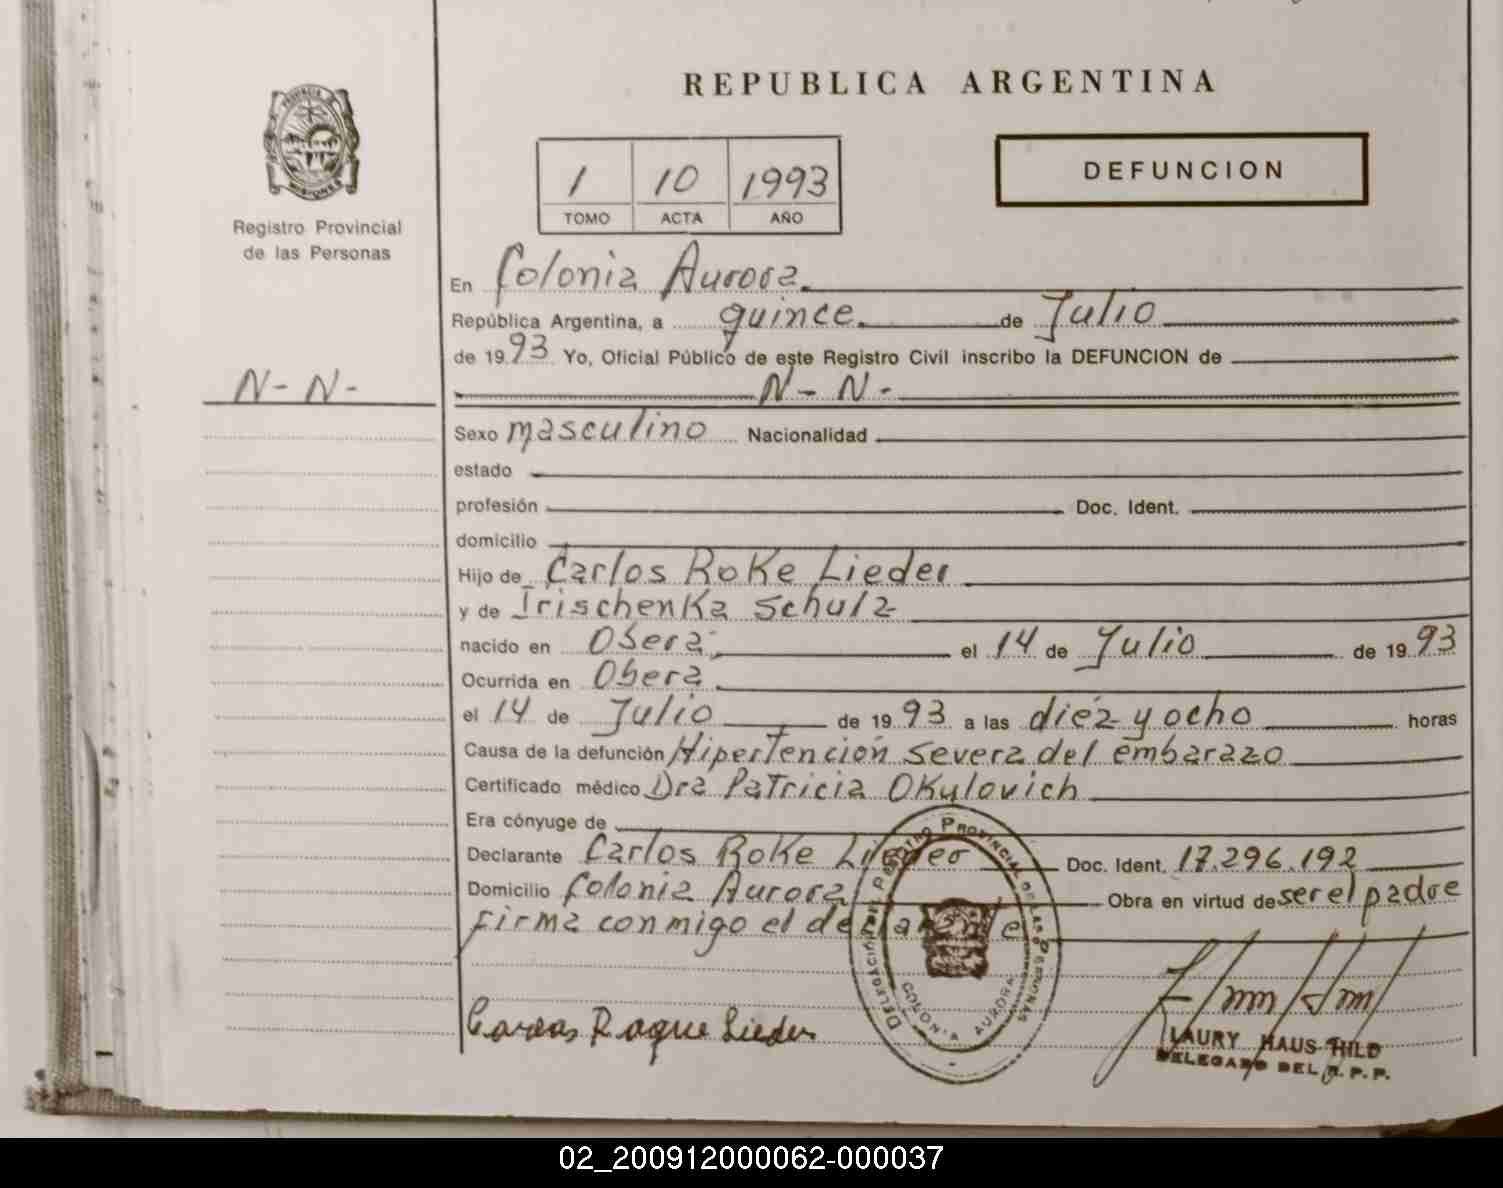 REPUBLICA ARGENTINA
PROVINCIA DE
MISIONES
Registro Provincial
de las Personas
1 10 1993
TOMO ACTA AÑO
DEFUNCION
En Colonia Aurora
República Argentina, a quince de Julio
de 1993 Yo, Oficial Público de este Registro Civil inscribo la DEFUNCION de
N- N-
N- N-
Sexo masculino Nacionalidad
estado
profesión Doc. Ident.
domicilio
Hijo de Carlos Roke Lieder
y de Irischenka Schulz
nacido en Obera el 14 de Julio de 1993
Ocurrida en Obera
el 14 de Julio de 1993 a las diez y ocho horas
Causa de la defunción Hipertención severa del embarazo
Certificado médico Dra Patricia Okulovich
Era cónyuge de
Declarante Carlos Roke Lieder Doc. Ident. 17.296.192
Domicilio Colonia Aurora Obra en virtud de ser el padre
firma conmigo el declarante
DELEGACIÓN DEL REGISTRO PROVINCIAL DE LAS PERSONAS
COLONIA AURORA
Carlos Roque Lieder
LAURY HAUS HILD
DELEGADO DEL R.P.P.
02_200912000062-000037